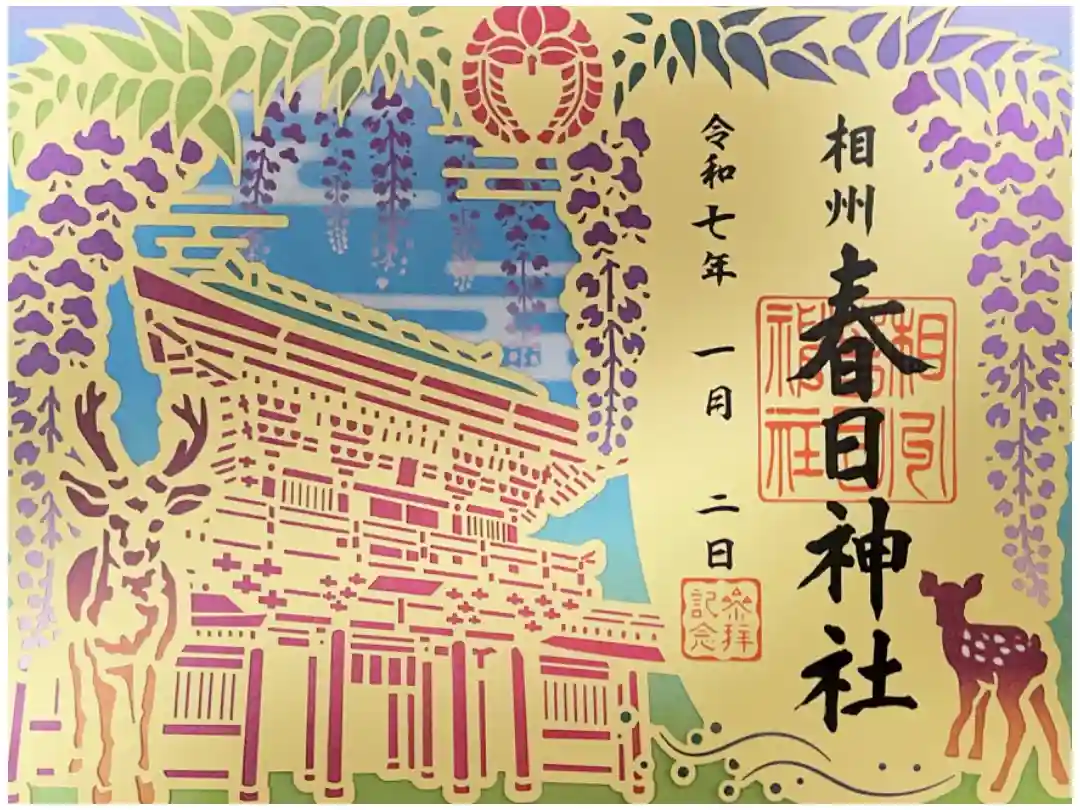 相州
春日神社
相州春日神社
令和七年 一月 二日
参拝記念